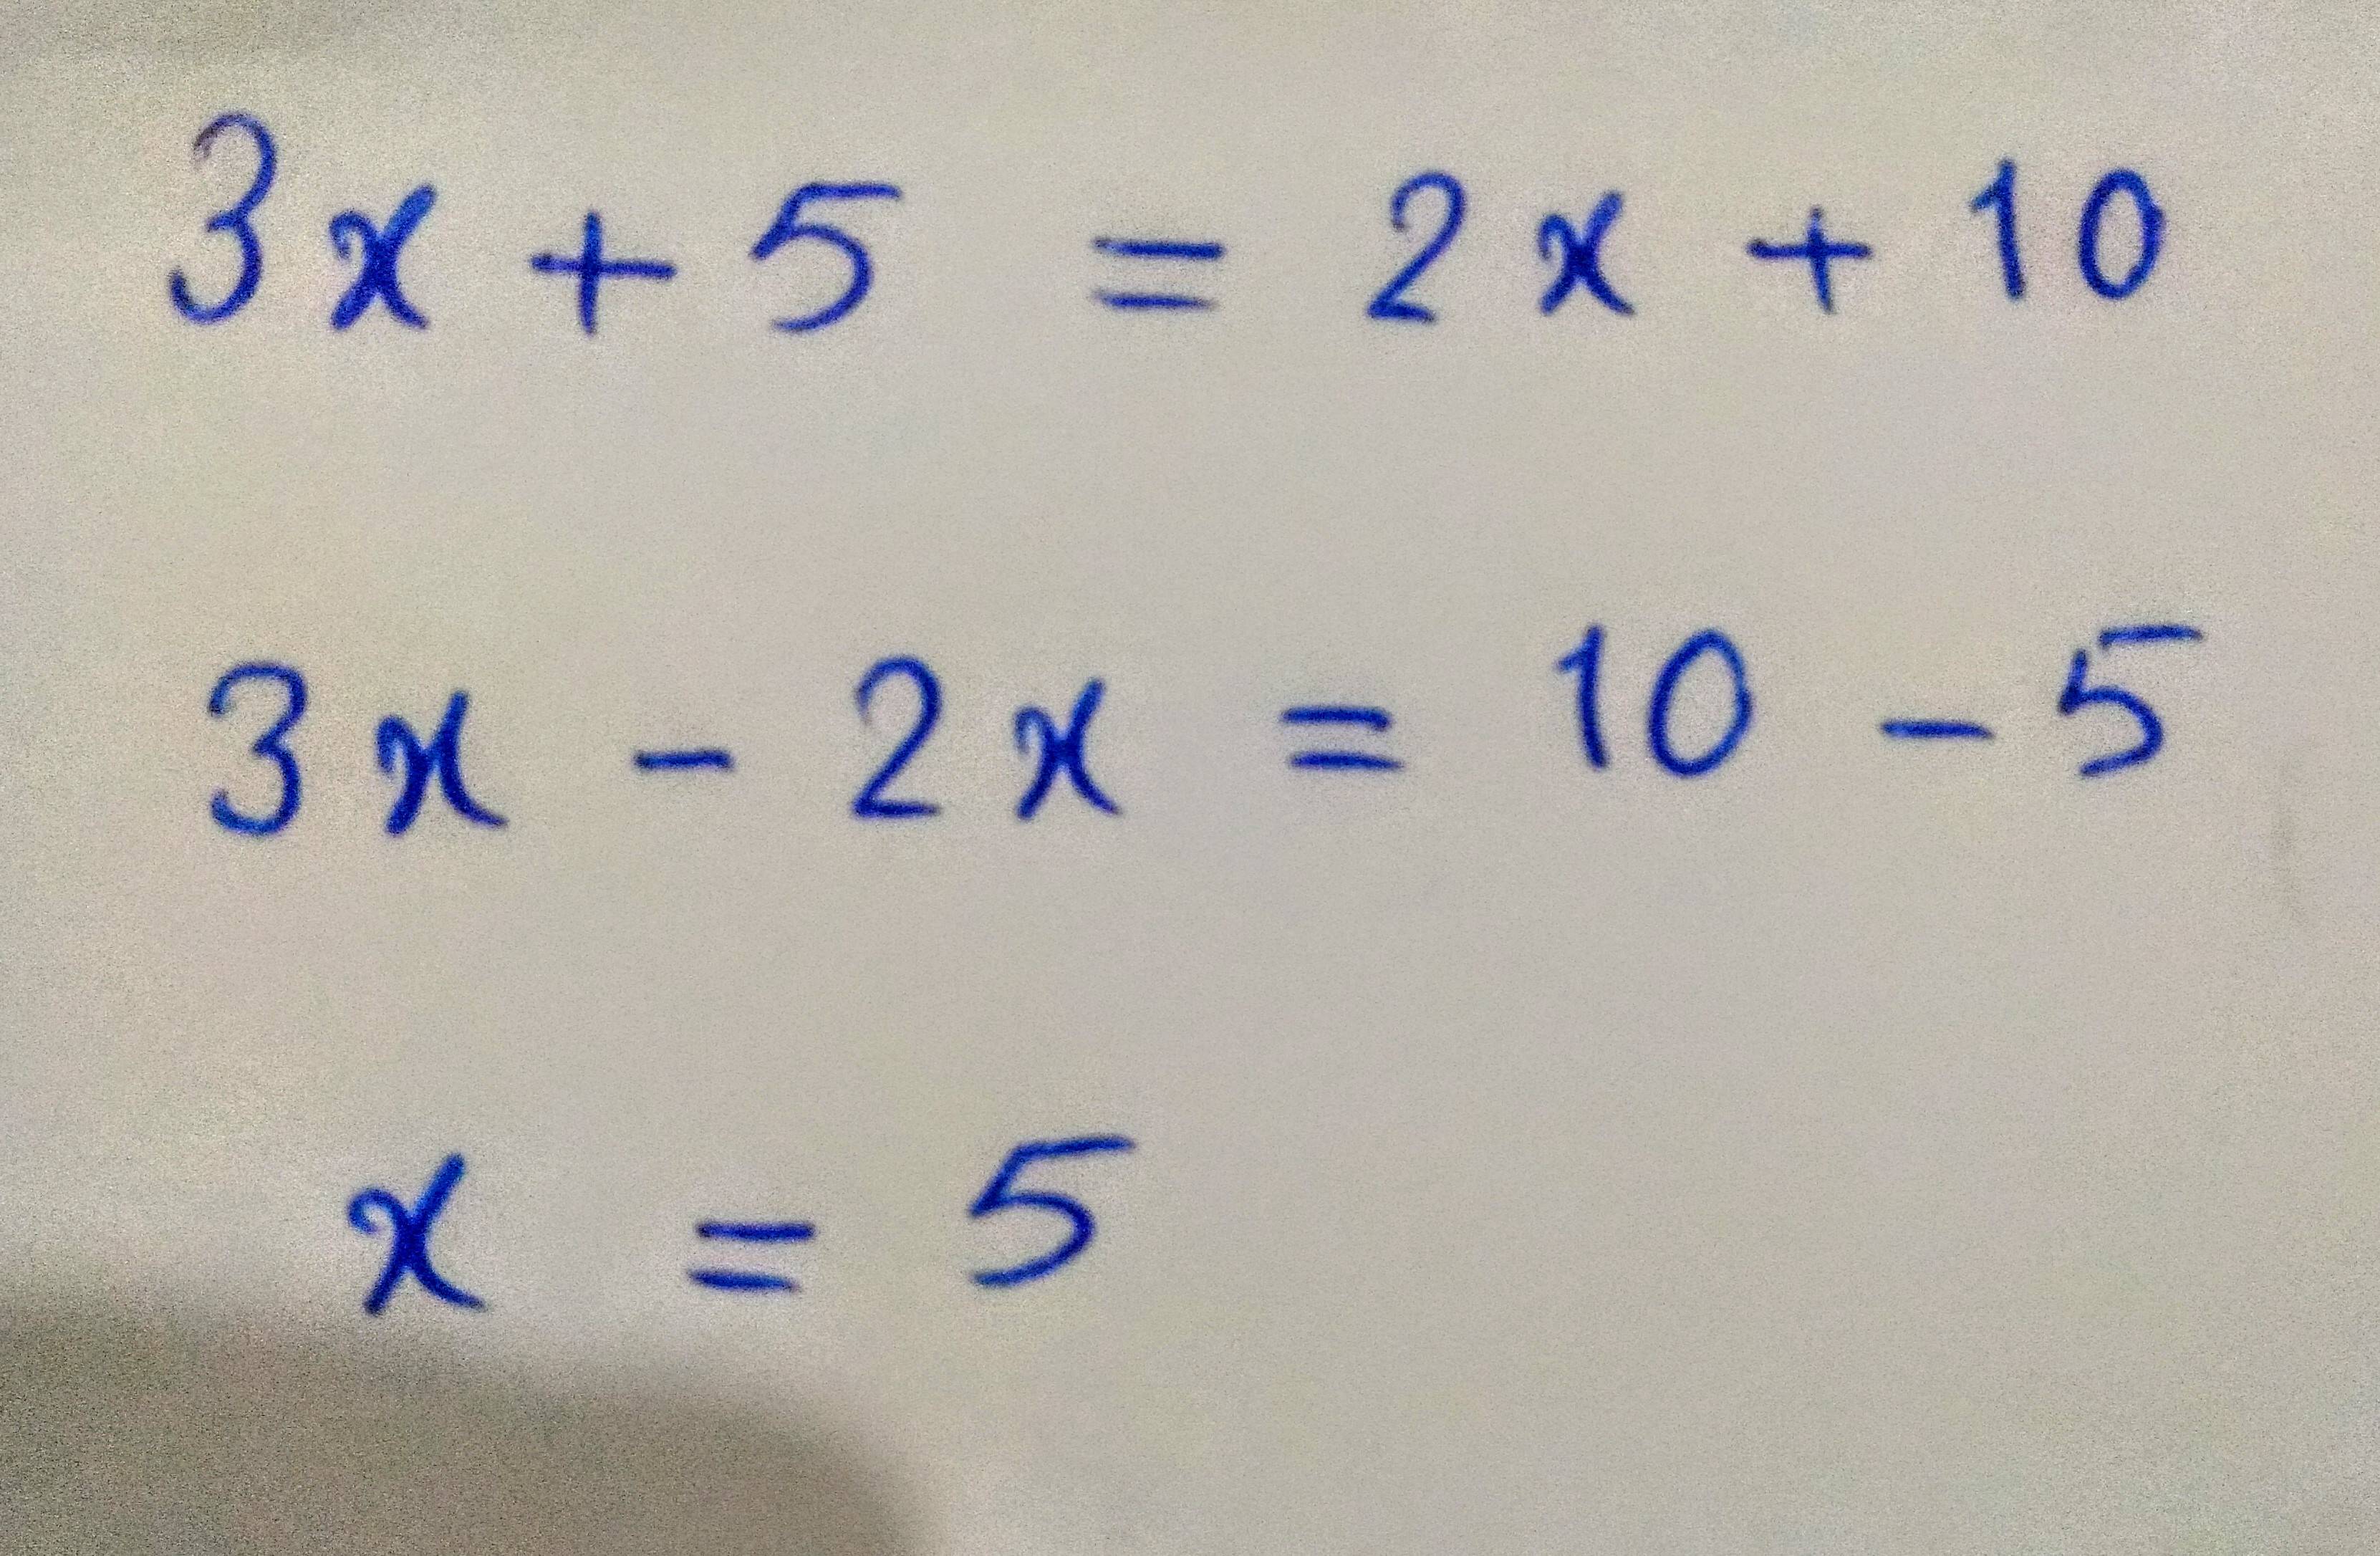 3x + 5 = 2x + 10
3x - 2x = 10 - 5
x = 5